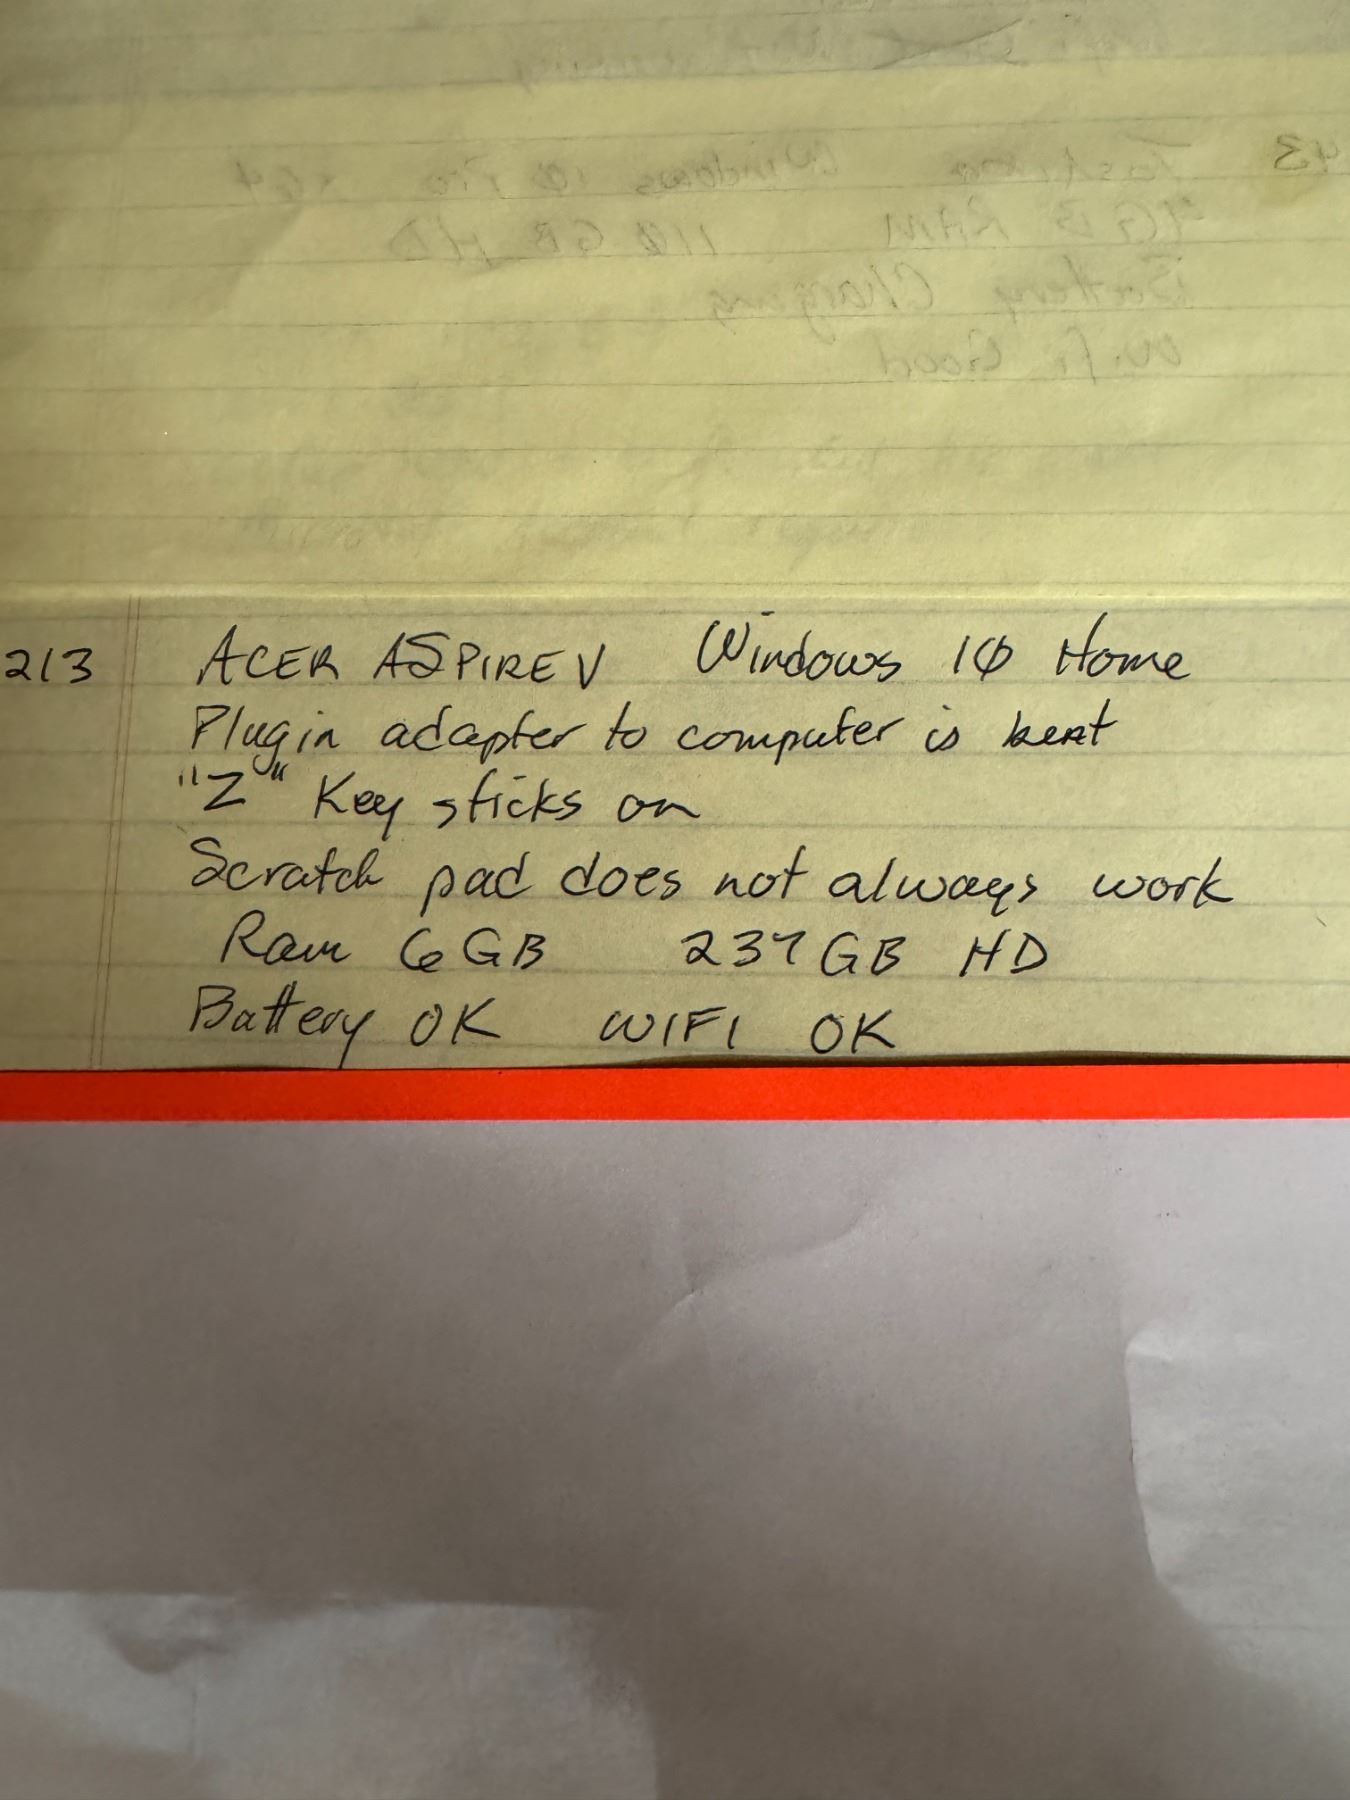 213 ACER ASPIRE V Windows 10 Home
Plugin adapter to computer is bent
"Z" Key sticks on
Scratch pad does not always work
Ram 6 GB 237 GB HD
Battery OK WIFI OK